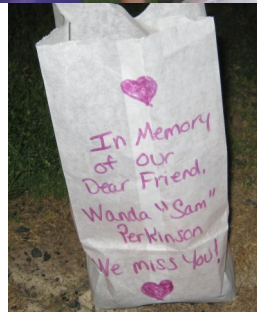 In Memory
of our
Dear Friend,
Wanda "Sam"
Perkinson
We miss You!